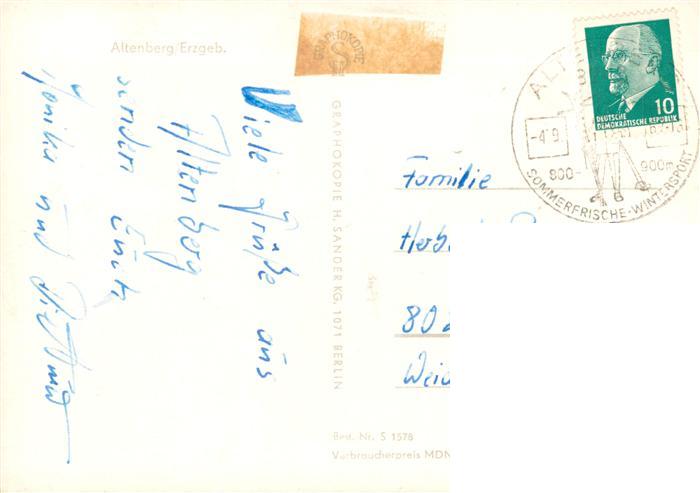 Altenberg/Erzgeb.
Viele Grüße aus
Altenberg
senden Euch
Monika und
GRAPHOKOPIE
GRAPHOKOPIE H. SANDER KG, 1071 BERLIN
Best. Nr. S 1578
Verbraucherpreis MDN
10
DEUTSCHE
DEMOKRATISCHE REPUBLIK
ALT
-4.9
800-
900m
SOMMERFRISCHE-WINTERSPORT
Familie
Herb
80
Weid